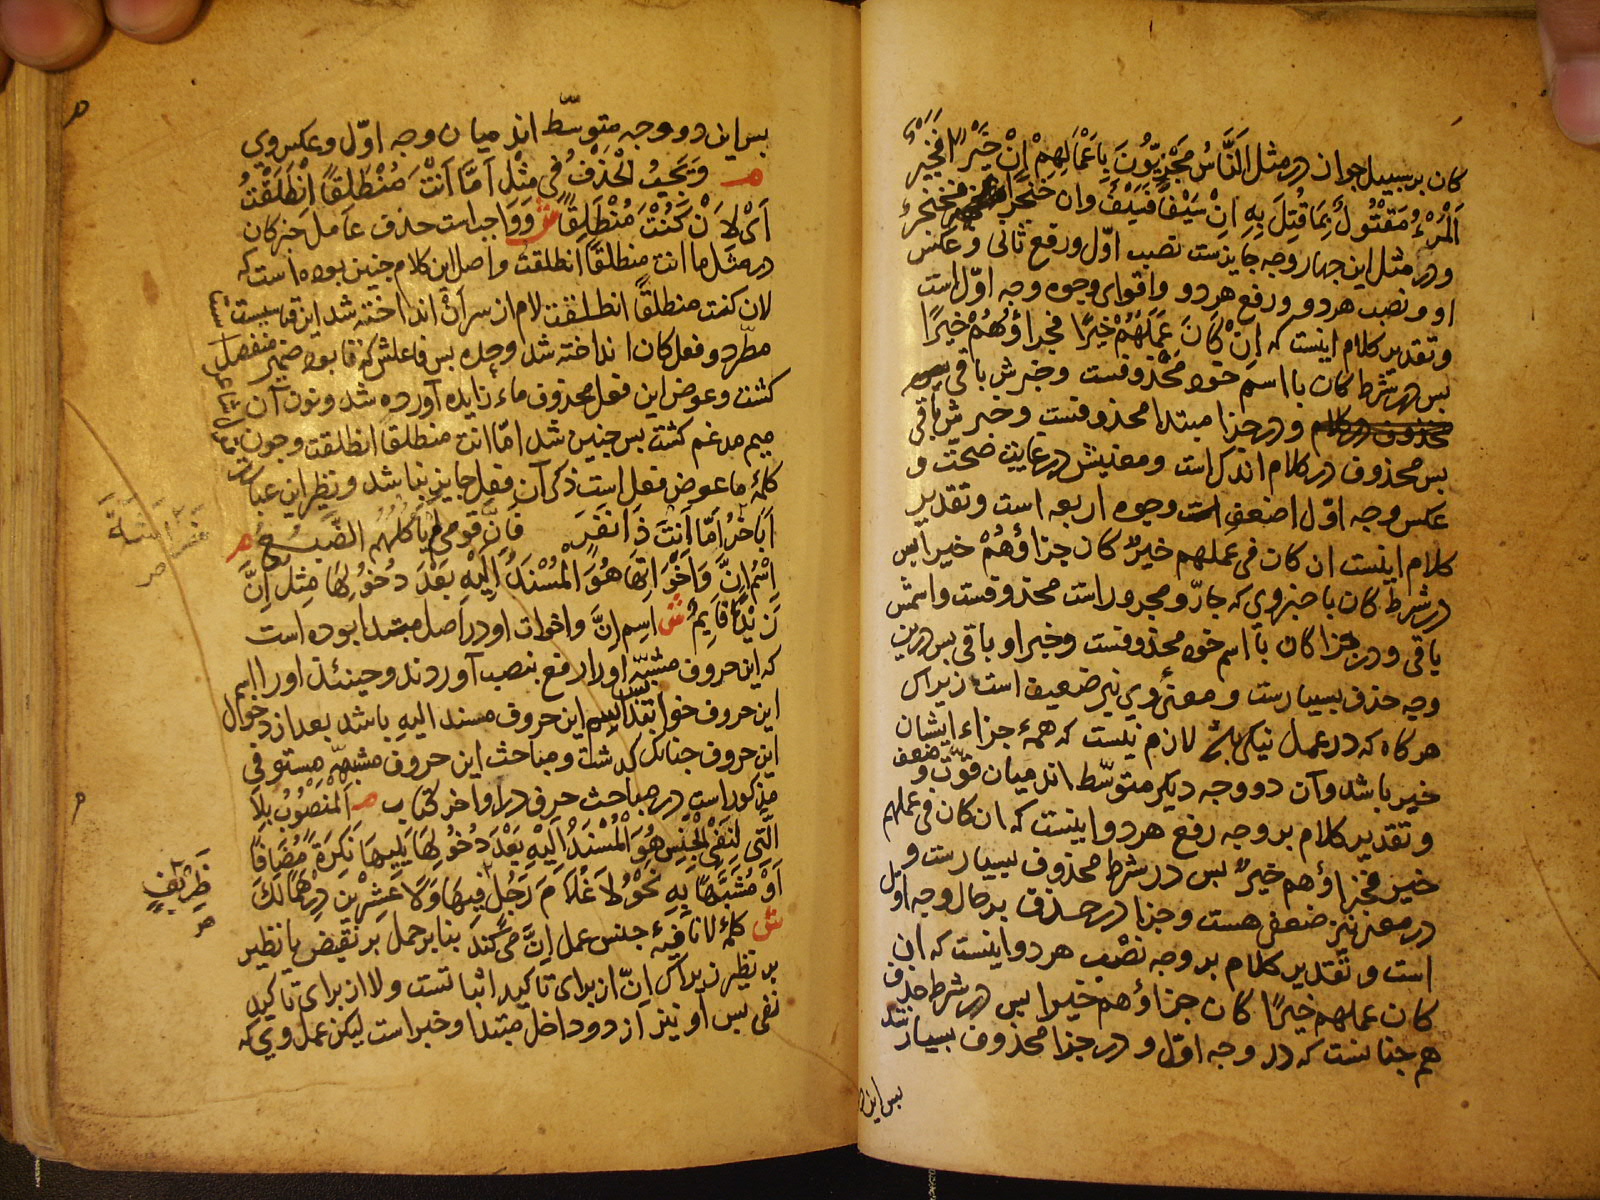 كان بر سبيل جواز در مثل اَلنَّاسُ مَجْزِيُّونَ بِاَعْمَالِهِمْ اِنْ خَيْرًا فَخَيْرٌ
اَلْمَرْءُ مَقْتُولٌ بِمَا قُتِلَ بِهِ اِنْ سَيْفًا فَسَيْفٌ وان خنجرًا فخنجرٌ
و در مثل اين چهار وجه جايزست نصب اوّل و رفع ثانى و عكس
او و نصب هر دو و رفع هر دو و اقواى وجوه وجه اوّل است
و تقدير كلام اينست كه اِنْ كَانَ عَمَلُهُمْ خَيْرًا فجزاؤُهُمْ خَيْرًا
بس در شرط كان با اسم خود مَحْذوفست و خبرش باقى
و در جزا مبتدا محذوفست و خبرش باقى
بس محذوف در كلام اندك است و معنيش در غايت صحّت و
عكس وجه اوّل اضعف وجوه اربعه است و تقدير
كلام اينست ان كان فى عملهم خيرٌ كان جزاؤُهُمْ خيرا بس
در شرط كان با خبر وى كه جارّ و مجرور است محذوفست و اسمش
باقى و در جزا كان با اسم خود محذوفست و خبر او باقى بس درين
وجه حذف بسيارست و معنى وى نيز ضعيف است زيراك
هر كاه كه در عمل نيكى باشد لازم نيست كه همۀ جزاء ايشان
خير باشد و آن دو وجه ديكر متوسّط اند ميان قوّت و ضعف
و تقدير كلام بر وجه رفع هر دو اينست كه ان كان فى عملهم
خير فجزاؤهم خيرٌ بس در شرط محذوف بسيارست و
در معنى نيز ضعفى هست و جزا در حذف بر حال وجه اوّل
است و تقدير كلام بر وجه نصْب هر دو اينست كه ان
كان عملهم خيرًا كان جزاؤهم خيرا بس در شرط حذف
هم چنانست كه در وجه اوّل و در جزا محذوف بسيار شد
بس اين
بس اين دو وجه متوسّط اند ميان وجه اوّل و عكس وى
م وَيَجِبُ الْحَذْفُ فى مِثْلِ اَمَّا اَنْتَ مُنْطَلِقًا اِنْطَلَقْتُ
اَىْ لِاَنْ كُنْتَ مُنْطَلِقًا ش و واجب است حذف عامل خبر كان
در مثل اما انت منطلقًا انطلقت و اصل اين كلام چنين بوده است كه
لان كنت منطلقًا انطلقت لام از سر اَنْ انداخته شد اين قياسيست
مطّرد و فعل كان انداخته شد وحده بس فاعلش كه تا بود ضمير منفصل
كشت و عوض اين فعل محذوف ماء زايده آورده شد و نون آن
ميم مدغم كشت بس چنين شد امّا انت منطلقًا انطلقت و چون
كلمۀ ما عوض فعل است ذكر آن فعل جايز نباشد و نظير اين عبارت
اَبَا خُرَاشَةَ
اَبَا خُرَ اَمَّا اَنْتَ ذَا نَفَرٍ فَاِنَّ قومى لم يَأْكُلْهُم الضَّبُعُ م
اِسْمُ اِنَّ وَاَخَوَاتِهَا هُوَ الْمُسْنَدُ اِلَيْهِ بَعْدَ دُخُولِهَا مِثْلُ اِنَّ
زَيْدًا قَايِمٌ ش اسم اِنَّ و اخوات او در اصل مبتدا بوده است
كه اين حروف مشبّهه او را از رفع بنصب آوردند و حينئذ او را اسم
اين حروف خوانند بس اسم اين حروف مسند اليه باشد بعد از دخول
اين حروف چنانك كذشت و مباحث اين حروف مشبهّه مستوفى
مذكور است در مباحث حرف در اواخر كتاب م اَلْمَنْصُوبُ بِلَا
الَّتِى لِنَفْىِ الْجِنْسِ هُوَ الْمُسْنَدُ اِلَيْهِ بَعْدَ دُخُولِهَا يَلِيهَا نَكِرَةً مُضَافًا
اَوْ مُشَبَّهًا بِهِ نَحْوُ لَا غُلَامَ رَجُلٍ فِيهَا وَلَا عِشْرِينَ دِرْهَمًا لَكَ
ظَرِيفٌ
ش كلمۀ لا نافيۀ جنس عمل اِنَّ مى كند بنا بر حمل بر نقيض يا نظير
بر نظير زيراك اِنّ از براى تاكيد اثباتست و لا از براى تاكيد
نفى بس او نيز از دوداخل مبتدا و خبر است ليكن عمل وى كه